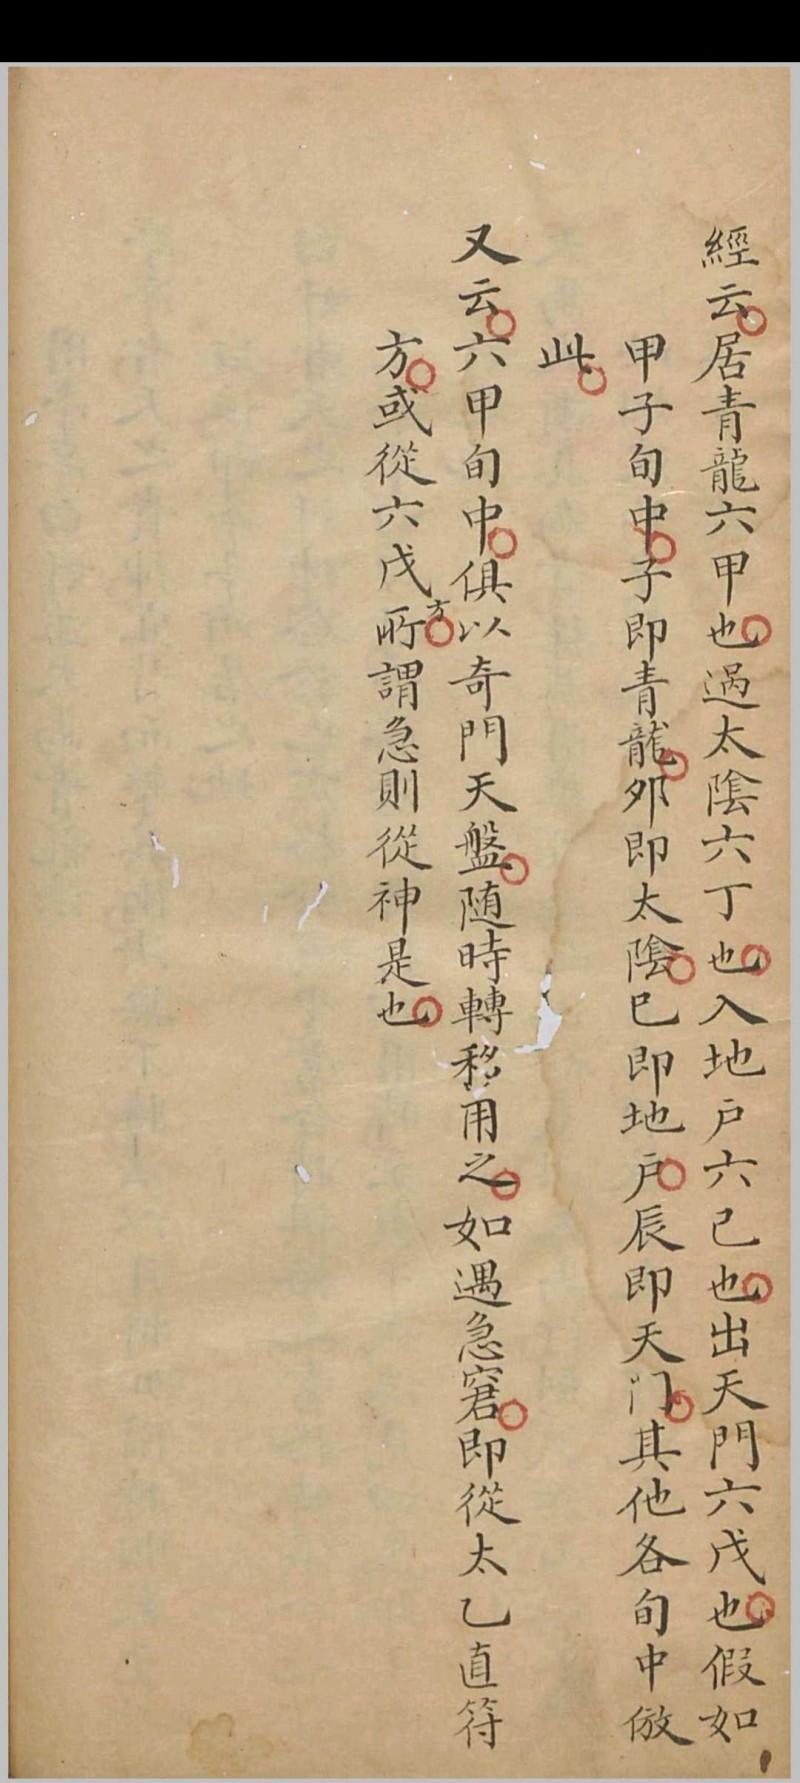 經云居青龍六甲也過太陰六丁也入地户六己也出天門六戊也假如
甲子旬中子即青龍夘即太陰巳即地户辰即天门其他各旬中倣
此
又云六甲旬中俱以奇門天盤随時轉移用之如遇急窘即從太乙直符
方或從六戊方所謂急則從神是也